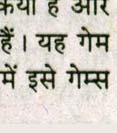 क्या है और
हैं। यह गेम
में इसे गेम्स